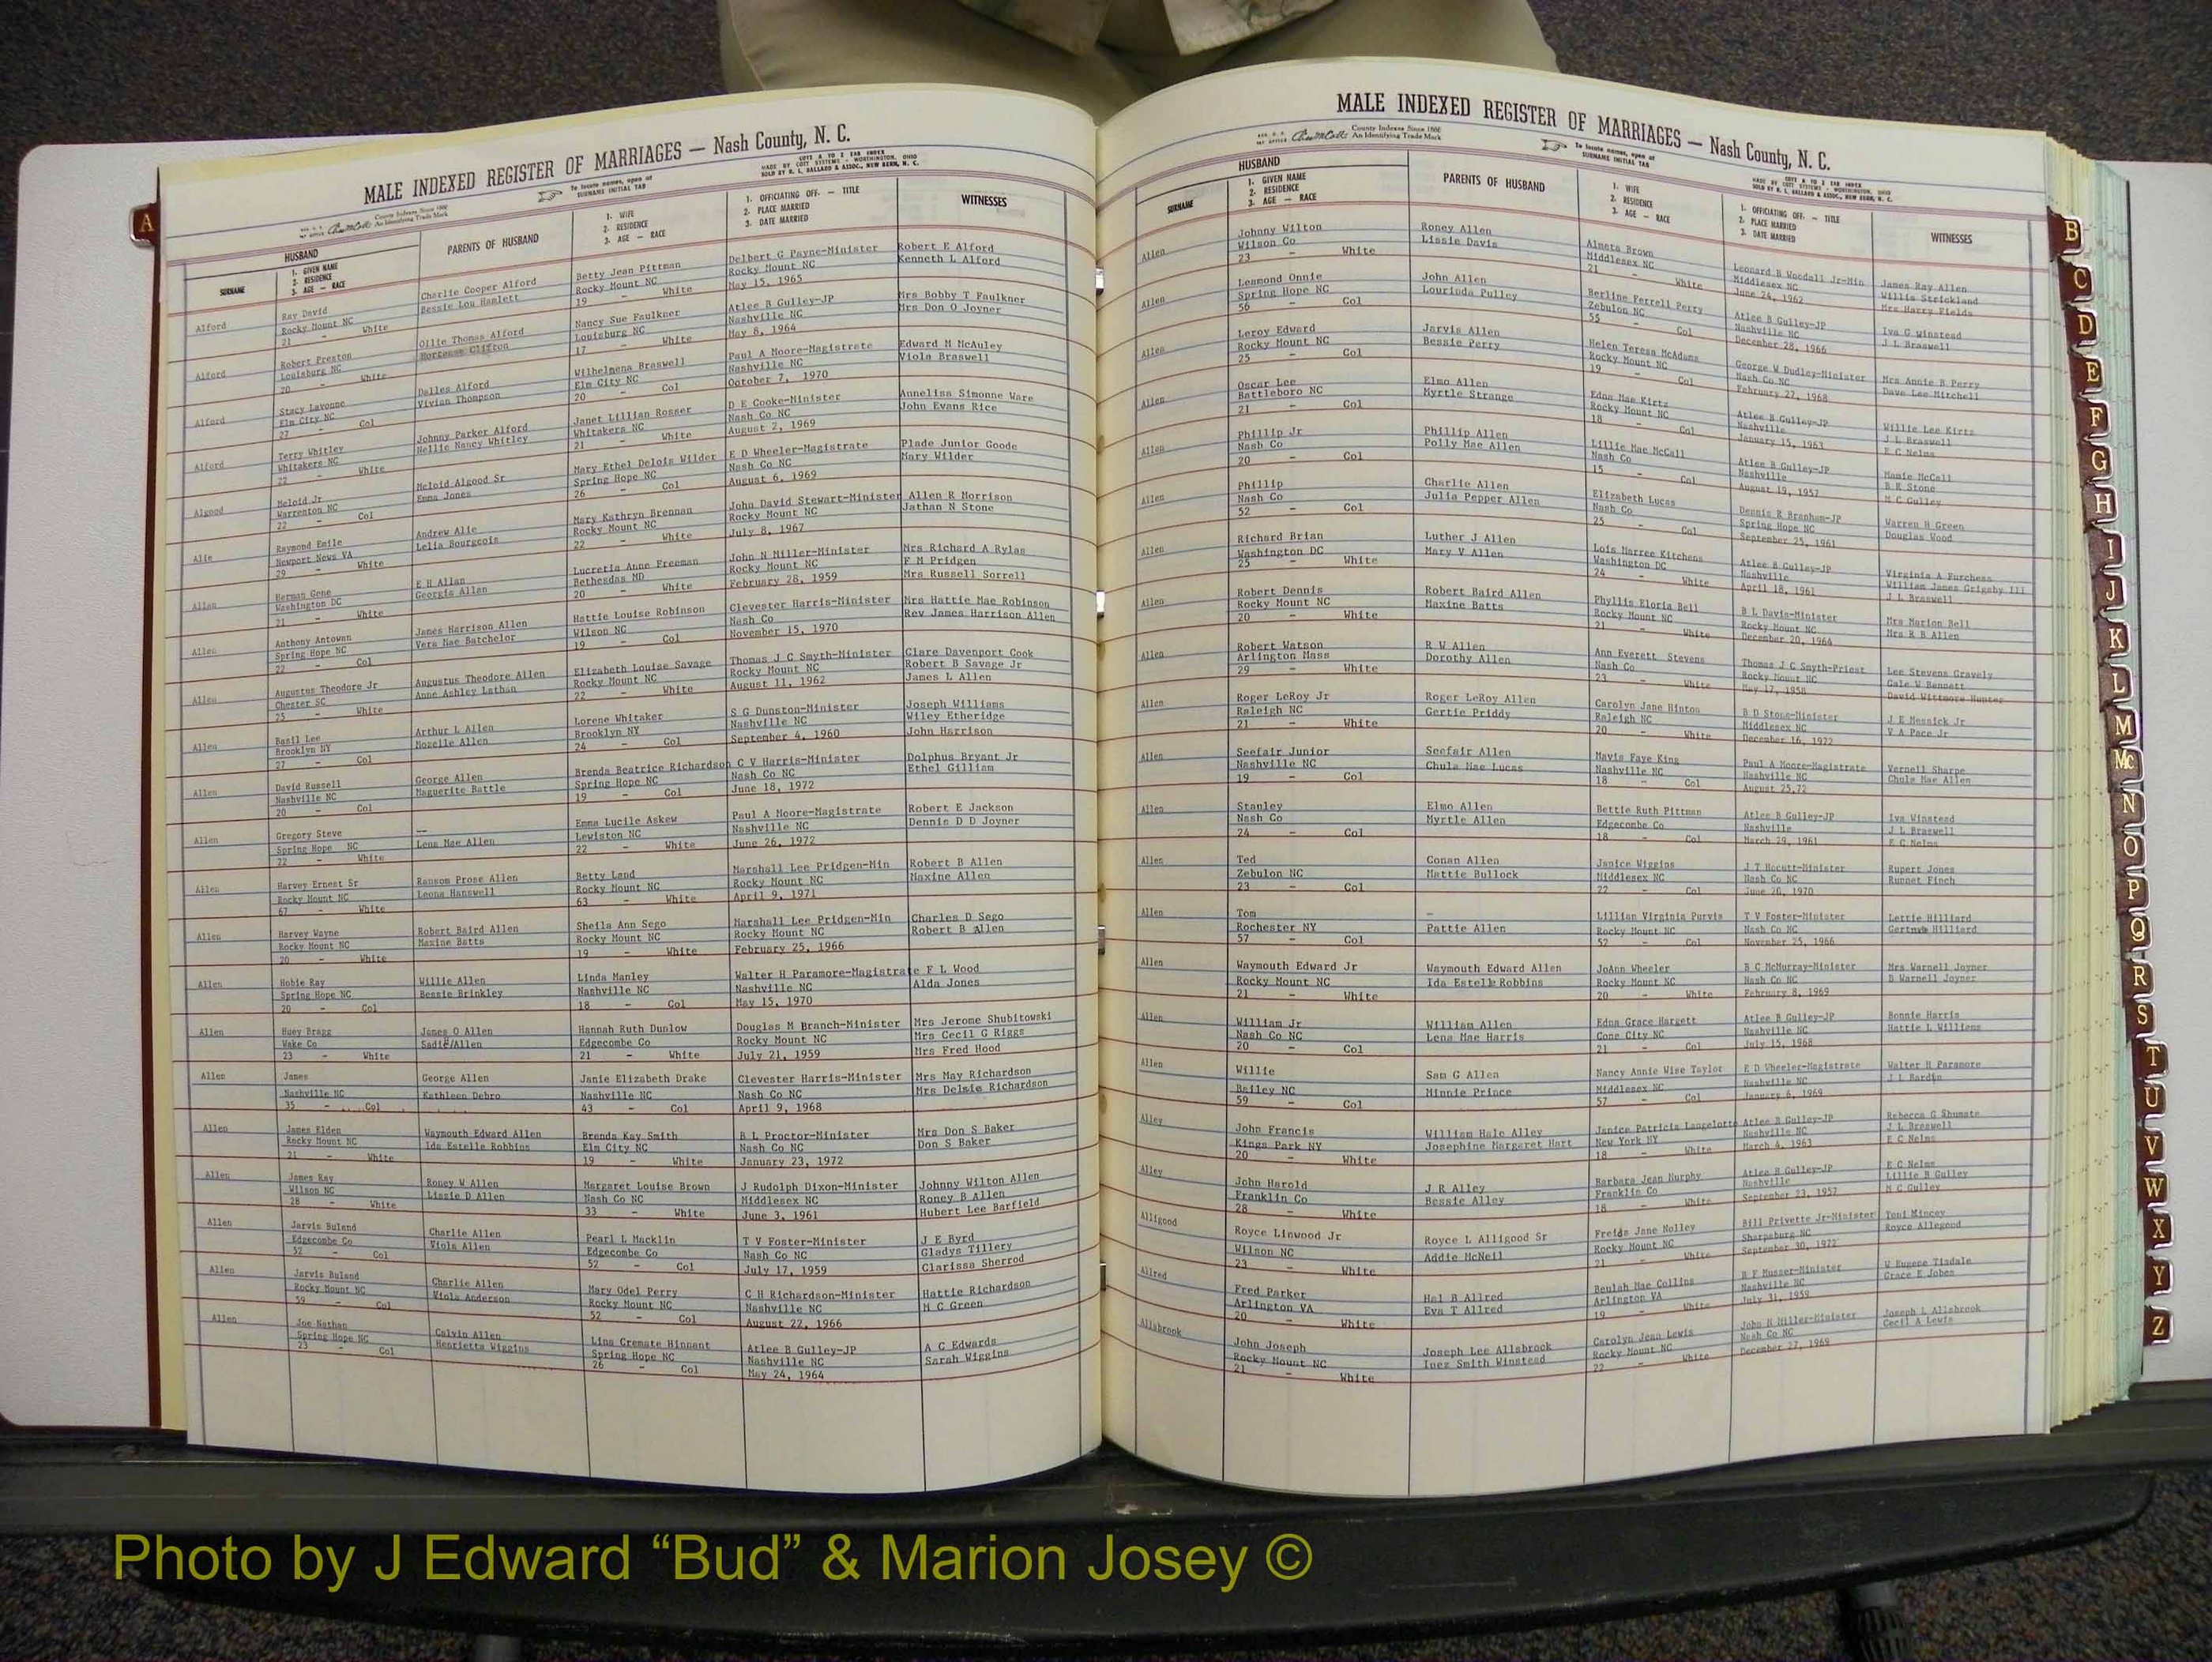 MALE INDEXED REGISTER OF MARRIAGES — Nash County, N. C.
County Indexes Since 1888
An Identifying Trade Mark
To locate names, open at
SURNAME INITIAL TAB
COTT A TO Z TAB INDEX
MADE BY COTT SYSTEMS - WORTHINGTON, OHIO
SOLD BY R. L. BALLARD & ASSOC., NEW BERN, N. C.
HUSBAND
SURNAME
1. GIVEN NAME
2. RESIDENCE
3. AGE — RACE
PARENTS OF HUSBAND
1. WIFE
2. RESIDENCE
3. AGE — RACE
1. OFFICIATING OFF. — TITLE
2. PLACE MARRIED
3. DATE MARRIED
WITNESSES
A
Alford Ray David Charlie Cooper Alford Betty Jean Pittman Delbert G Payne-Minister Robert E Alford
Rocky Mount NC Bessie Lou Hamlett Rocky Mount NC Rocky Mount NC Kenneth L Alford
21 - White 19 - White May 15, 1965
Alford Robert Preston Ollie Thomas Alford Nancy Sue Faulkner Atlee B Gulley-JP Mrs Bobby T Faulkner
Louisburg NC Hortense Clifton Louisburg NC Nashville NC Mrs Don O Joyner
20 - White 17 - White May 8, 1964
Alford Stacy Lavonne Dalles Alford Wilhelmena Braswell Paul A Moore-Magistrate Edward M McAuley
Elm City NC Vivian Thompson Elm City NC Nashville NC Viola Braswell
27 - Col 20 - Col October 7, 1970
Alford Terry Whitley Johnny Parker Alford Janet Lillian Rosser D E Cooke-Minister Annelisa Simonne Ware
Whitakers NC Nellie Nancy Whitley Whitakers NC Nash Co NC John Evans Rice
22 - White 21 - White August 2, 1969
Algood Meloid Jr Meloid Algood Sr Mary Ethel Delois Wilder E D Wheeler-Magistrate Plade Junior Goode
Warrenton NC Emma Jones Spring Hope NC Nash Co NC Mary Wilder
22 - Col 26 - Col August 6, 1969
Alie Raymond Emile Andrew Alie Mary Kathryn Brennan John David Stewart-Minister Allen R Morrison
Newport News VA Lelia Bourgeois Rocky Mount NC Rocky Mount NC Jathan N Stone
29 - White 22 - White July 8, 1967
Allan Herman Gene E H Allan Lucretia Anne Freeman John N Miller-Minister Mrs Richard A Rylas
Washington DC Georgia Allan Bethesdas MD Rocky Mount NC F M Pridgen
21 - White 20 - White February 28, 1959 Mrs Russell Sorrell
Allen Anthony Antowan James Harrison Allen Hattie Louise Robinson Clevester Harris-Minister Mrs Hattie Mae Robinson
Spring Hope NC Vera Mae Batchelor Wilson NC Nash Co Rev James Harrison Allen
22 - Col 19 - Col November 15, 1970
Allen Augustus Theodore Jr Augustus Theodore Allen Elizabeth Louise Savage Thomas J C Smyth-Minister Clare Davenport Cook
Chester SC Anne Ashley Lathan Rocky Mount NC Rocky Mount NC Robert B Savage Jr
25 - White 22 - White August 11, 1962 James L Allen
Allen Basil Lee Arthur L Allen Lorene Whitaker S G Dunston-Minister Joseph Williams
Brooklyn NY Mozelle Allen Brooklyn NY Nashville NC Wiley Etheridge
27 - Col 24 - Col September 4, 1960 John Harrison
Allen David Russell George Allen Brenda Beatrice Richardson C V Harris-Minister Dolphus Bryant Jr
Nashville NC Maguerite Battle Spring Hope NC Nash Co NC Ethel Gilliam
20 - Col 19 - Col June 18, 1972
Allen Gregory Steve -- Emma Lucile Askew Paul A Moore-Magistrate Robert E Jackson
Spring Hope NC Lena Mae Allen Lewiston NC Nashville NC Dennis D D Joyner
22 - White 22 - White June 26, 1972
Allen Harvey Ernest Sr Ransom Prose Allen Betty Land Marshall Lee Pridgen-Min Robert B Allen
Rocky Mount NC Leona Hanswell Rocky Mount NC Rocky Mount NC Maxine Allen
67 - White 63 - White April 9, 1971
Allen Harvey Wayne Robert Baird Allen Sheila Ann Sego Marshall Lee Pridgen-Min Charles D Sego
Rocky Mount NC Maxine Batts Rocky Mount NC Rocky Mount NC Robert B Allen
20 - White 19 - White February 25, 1966
Allen Hobie Ray Willie Allen Linda Manley Walter H Paramore-Magistrate F L Wood
Spring Hope NC Bessie Brinkley Nashville NC Nashville NC Alda Jones
20 - Col 18 - Col May 15, 1970
Allen Huey Bragg James O Allen Hannah Ruth Dunlow Douglas M Branch-Minister Mrs Jerome Shubitowski
Wake Co Sadie Allen Edgecombe Co Rocky Mount NC Mrs Cecil G Riggs
23 - White 21 - White July 21, 1959 Mrs Fred Hood
Allen James George Allen Janie Elizabeth Drake Clevester Harris-Minister Mrs May Richardson
Nashville NC Kathleen Debro Nashville NC Nash Co NC Mrs Delsie Richardson
35 - Col 43 - Col April 9, 1968
Allen James Elden Waymouth Edward Allen Brenda Kay Smith B L Proctor-Minister Mrs Don S Baker
Rocky Mount NC Ida Estelle Robbins Elm City NC Nash Co NC Don S Baker
21 - White 19 - White January 23, 1972
Allen James Ray Roney W Allen Margaret Louise Brown J Rudolph Dixon-Minister Johnny Wilton Allen
Wilson NC Lissie D Allen Nash Co NC Middlesex NC Roney B Allen
28 - White 33 - White June 3, 1961 Hubert Lee Barfield
Allen Jarvis Buland Charlie Allen Pearl L Macklin T V Foster-Minister J E Byrd
Edgecombe Co Viola Allen Edgecombe Co Nash Co NC Gladys Tillery
52 - Col 52 - Col July 17, 1959 Clarissa Sherrod
Allen Jarvis Buland Charlie Allen Mary Odel Perry C H Richardson-Minister Hattie Richardson
Rocky Mount NC Viola Anderson Rocky Mount NC Nashville NC M C Green
59 - Col 52 - Col August 22, 1966
Allen Joe Nathan Calvin Allen Lina Cremate Hinnant Atlee B Gulley-JP A C Edwards
Spring Hope NC Henrietta Wiggins Spring Hope NC Nashville NC Sarah Wiggins
23 - Col 26 - Col May 24, 1964
MALE INDEXED REGISTER OF MARRIAGES — Nash County, N. C.
County Indexes Since 1888
An Identifying Trade Mark
To locate names, open at
SURNAME INITIAL TAB
COTT A TO Z TAB INDEX
MADE BY COTT SYSTEMS - WORTHINGTON, OHIO
SOLD BY R. L. BALLARD & ASSOC., NEW BERN, N. C.
HUSBAND
SURNAME
1. GIVEN NAME
2. RESIDENCE
3. AGE — RACE
PARENTS OF HUSBAND
1. WIFE
2. RESIDENCE
3. AGE — RACE
1. OFFICIATING OFF. — TITLE
2. PLACE MARRIED
3. DATE MARRIED
WITNESSES
Allen Johnny Wilton Roney Allen Almeta Brown Leonard B Woodall Jr-Min James Ray Allen
Wilson Co Lissie Davis Middlesex NC Middlesex NC Willis Strickland
23 - White 21 - White June 24, 1962 Mrs Harry Fields
Allen Leamond Onnie John Allen Berline Ferrell Perry Atlee B Gulley-JP Iva G winstead
Spring Hope NC Lourinda Pulley Zebulon NC Nashville NC J L Braswell
56 - Col 55 - Col December 28, 1966
Allen Leroy Edward Jarvis Allen Helen Teresa McAdams George W Dudley-Minister Mrs Annie B Perry
Rocky Mount NC Bessie Perry Rocky Mount NC Nash Co NC Dave Lee Mitchell
25 - Col 19 - Col February 27, 1968
Allen Oscar Lee Elmo Allen Edna Mae Kirtz Atlee B Gulley-JP Willie Lee Kirtz
Battleboro NC Myrtle Strange Rocky Mount NC Nashville J L Braswell
21 - Col 18 - Col January 15, 1963 E C Nelms
Allen Phillip Jr Phillip Allen Lillie Mae McCall Atlee B Gulley-JP Mamie McCall
Nash Co Polly Mae Allen Nash Co Nashville B R Stone
20 - Col 15 - Col August 19, 1957 M C Gulley
Allen Phillip Charlie Allen Elizabeth Lucas Dennis R Branham-JP Warren H Green
Nash Co Julia Pepper Allen Nash Co Spring Hope NC Douglas Wood
52 - Col 25 - Col September 25, 1961
Allen Richard Brian Luther J Allen Lois Marree Kitchens Atlee B Gulley-JP Virginia A Furchess
Washington DC Mary V Allen Washington DC Nashville William James Grigsby III
25 - White 24 - White April 18, 1961 J L Braswell
Allen Robert Dennis Robert Baird Allen Phyllis Eloria Bell B L Davis-Minister Mrs Marion Bell
Rocky Mount NC Maxine Batts Rocky Mount NC Rocky Mount NC Mrs R B Allen
20 - White 21 - White December 20, 1964
Allen Robert Watson R W Allen Ann Everett Stevens Thomas J C Smyth-Priest Lee Stevens Gravely
Arlington Mass Dorothy Allen Nash Co Rocky Mount NC Gale W Bennett
29 - White 23 - White May 17, 1958 David Wittmore Hunter
Allen Roger LeRoy Jr Roger LeRoy Allen Carolyn Jane Hinton B D Stone-Minister J E Messick Jr
Raleigh NC Gertie Priddy Raleigh NC Middlesex NC V A Pace Jr
21 - White 20 - White December 16, 1972
Allen Seefair Junior Seefair Allen Mavis Faye King Paul A Moore-Magistrate Vernell Sharpe
Nashville NC Chula Mae Lucas Nashville NC Nashville NC Chula Mae Allen
19 - Col 18 - Col August 25,72
Allen Stanley Elmo Allen Bettie Ruth Pittman Atlee B Gulley-JP Iva Winstead
Nash Co Myrtle Allen Edgecombe Co Nashville J L Braswell
24 - Col 18 - Col March 29, 1961 E C Nelms
Allen Ted Conan Allen Janice Wiggins J T Hocutt-Minister Rupert Jones
Zebulon NC Mattie Bullock Middlesex NC Nash Co NC Runnet Finch
23 - Col 22 - Col June 20, 1970
Allen Tom - Lillian Virginia Purvis T V Foster-Minister Lettie Hilliard
Rochester NY Pattie Allen Rocky Mount NC Nash Co NC Hilliard
57 - Col 52 - Col November 25, 1966
Allen Waymouth Edward Jr Waymouth Edward Allen JoAnn Wheeler B C McMurray-Minister Mrs Warnell Joyner
Rocky Mount NC Ida Estelle Robbins Rocky Mount NC Nash Co NC B Warnell Joyner
21 - White 20 - White February 8, 1969
Allen William Jr William Allen Edna Grace Hargett Atlee B Gulley-JP Bonnie Harris
Nash Co NC Lena Mae Harris Cone City NC Nashville NC Hattie L Williams
20 - Col 21 - Col July 15, 1968
Allen Willie Sam G Allen Nancy Annie Wise Taylor E D Wheeler-Magistrate Walter H Paramore
Bailey NC Minnie Prince Middlesex NC Nashville NC J L Bardin
59 - Col 57 - Col January 6, 1969
Alley John Francis William Hale Alley Janice Patricia Langelotte Atlee B Gulley-JP Rebecca G Shumate
Kings Park NY Josephine Margaret Hart New York NY Nashville NC J L Braswell
20 - White 18 - White March 4, 1963 E C Nelms
Alley John Harold J R Alley Barbara Jean Murphy Atlee B Gulley-JP E C Nelms
Franklin Co Bessie Alley Franklin Co Nashville Lillie B Gulley
28 - White 18 - White September 23, 1957 M C Gulley
Alligood Royce Linwood Jr Royce L Alligood Sr Freida Jane Nolley Bill Privette Jr-Minister Toni Mincey
Wilson NC Addie McNeil Rocky Mount NC Sharpsburg NC Royce Allegood
23 - White 21 - White September 30, 1972
Allred Fred Parker Hal B Allred Beulah Mae Collins B F Musser-Minister W Eugene Tisdale
Arlington VA Eva T Allred Arlington VA Nashville NC Grace E Jobes
20 - White 19 - White July 31, 1959
Allsbrook John Joseph Joseph Lee Allsbrook Carolyn Jean Lewis John H Miller-Minister Joseph L Allsbrook
Rocky Mount NC Inez Smith Winstead Rocky Mount NC Nash Co NC Cecil A Lewis
21 - White 22 - White December 27, 1969
B
C
D
E
F
G
H
I
J
K
L
M
Mc
N
O
P
Q
R
S
T
U
V
W
X
Y
Z
Photo by J Edward “Bud” & Marion Josey ©